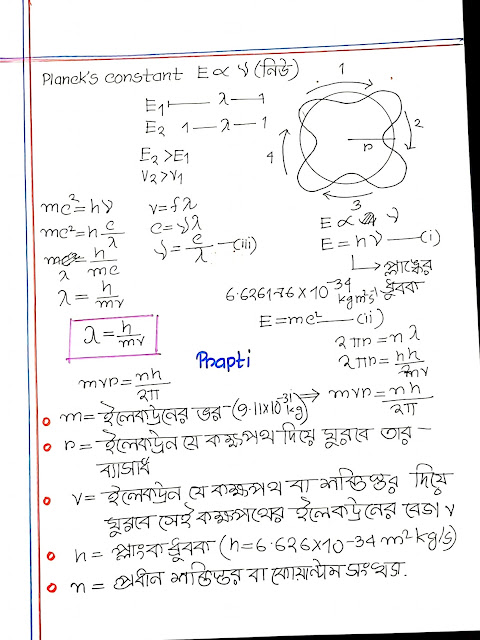 Planck's constant E ∝ ν (নিউ)
E1 ⊢— λ —⊣
E2 1— λ —1
E2 > E1
ν2 > ν1
1
2
3
4
r
mc² = hν
mc² = h c/λ
h/mc
λ = h/mv
λ = h/mv
v = fλ
c = νλ
ν = c/λ —(iii)
E ∝ ν
E = hν —(i)
→ প্লাঙ্কের ধ্রুবক
6.626176 × 10^-34 kgm²s⁻¹
E = mc² —(ii)
Prapti
2πr = nλ
2πr = nh/mv
mvr = nh/2π
⇒ mvr = nh/2π
m = ইলেকট্রনের ভর - (9.11×10^-31 kg)
r = ইলেকট্রন যে কক্ষপথ দিয়ে ঘুরবে তার -
ব্যাসার্ধ
v = ইলেকট্রন যে কক্ষপথ বা শক্তিস্তর দিয়ে
ঘুরবে সেই কক্ষপথের ইলেকট্রনের বেগ v
h = প্লাংক ধ্রুবক (h = 6.626×10-34 m² kg/s)
n = প্রধান শক্তিস্তর বা কোয়ান্টাম সংখ্যা.